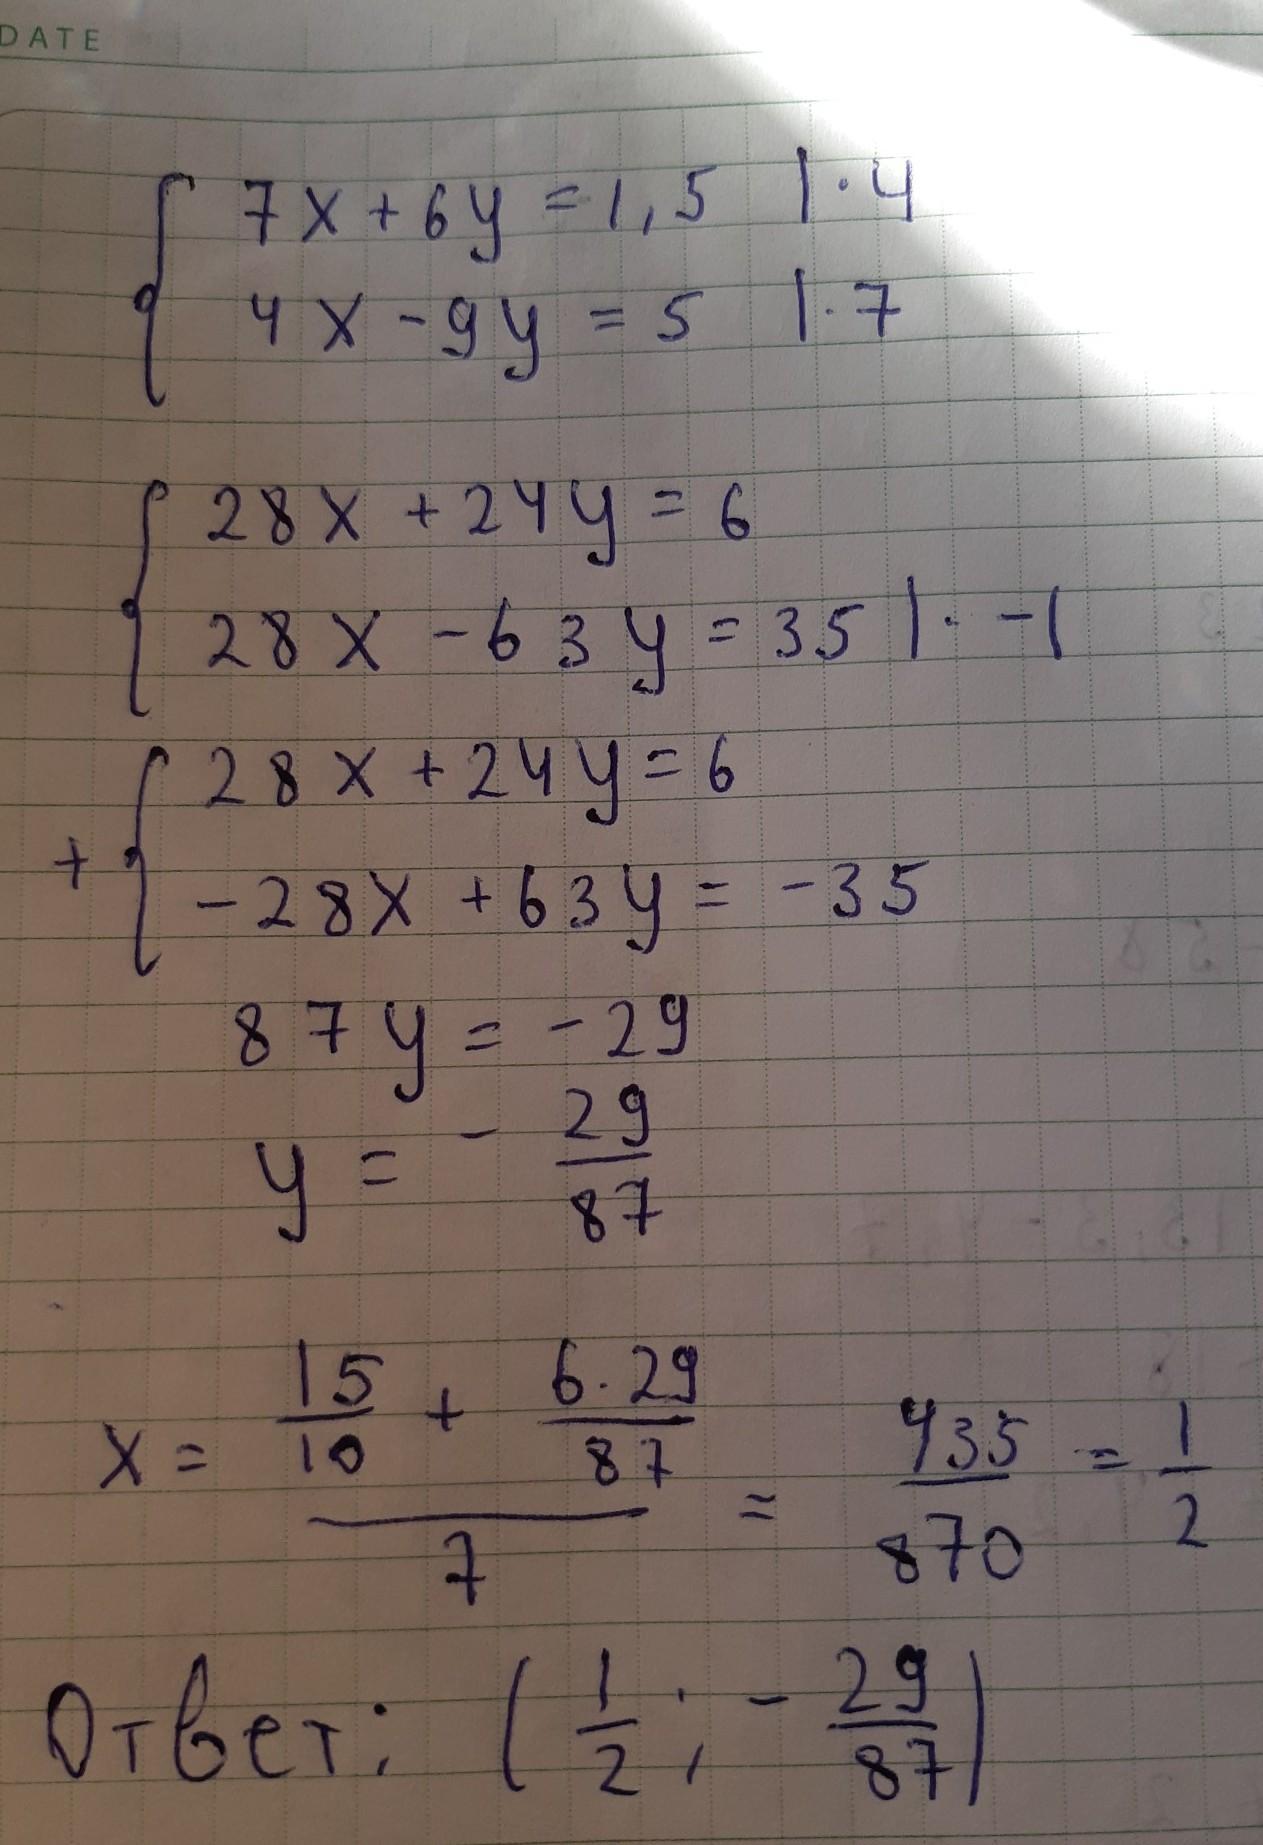 DATE
7x+6y=1,5 |·4
4x-9y=5 |·7
28x+24y=6
28x-63y=35 |· -1
28x+24y=6
+
-28x+63y=-35
87y=-29
y=-29/87
x=(15/10+6·29/87)/7=435/870=1/2
Ответ: (1/2; -29/87)